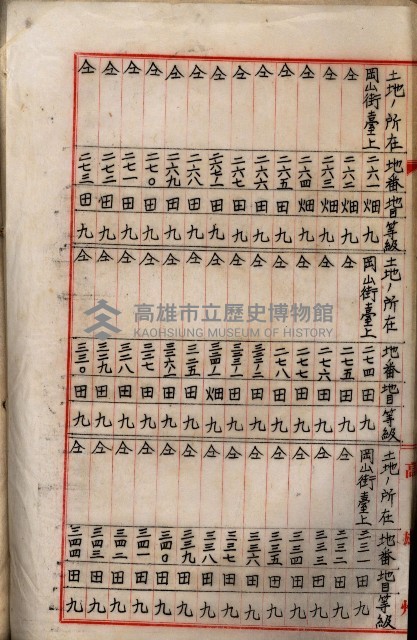 土地ノ所在 地番 地目 等級
岡山街臺上 二六一 畑 九
仝 二六二 畑 九
仝 二六三 畑 九
仝 二六四 畑 九
仝 二六五 田 九
仝 二六六 田 九
仝 二六七 田 九
仝 田 九
仝 二六八 田 九
仝 二六九 田 九
仝 二七〇 田 九
仝 二七一 田 九
仝 二七二 田 九
仝 二七三 田 九
土地ノ所在 地番 地目 等級
岡山街臺上 二七四 田 九
仝 二七五 田 九
仝 二七六 田 九
仝 二七七 田 九
仝 二七八 田 九
仝 田 九
仝 田 九
仝 畑 九
仝 三二五 田 九
仝 田 九
仝 三二七 田 九
仝 三二八 田 九
仝 三二九 田 九
仝 三三〇 田 九
土地ノ所在 地番 地目 等級
岡山街臺上 三三一 田 九
仝 三三二 田 九
仝 三三三 田 九
仝 三三四 田 九
仝 三三五 田 九
仝 三三六 田 九
仝 三三七 田 九
仝 三三八 田 九
仝 三三九 田 九
仝 三四〇 田 九
仝 三四一 田 九
仝 三四二 田 九
仝 三四三 田 九
仝 三四四 田 九
高雄州
高雄市立歷史博物館
KAOHSIUNG MUSEUM OF HISTORY